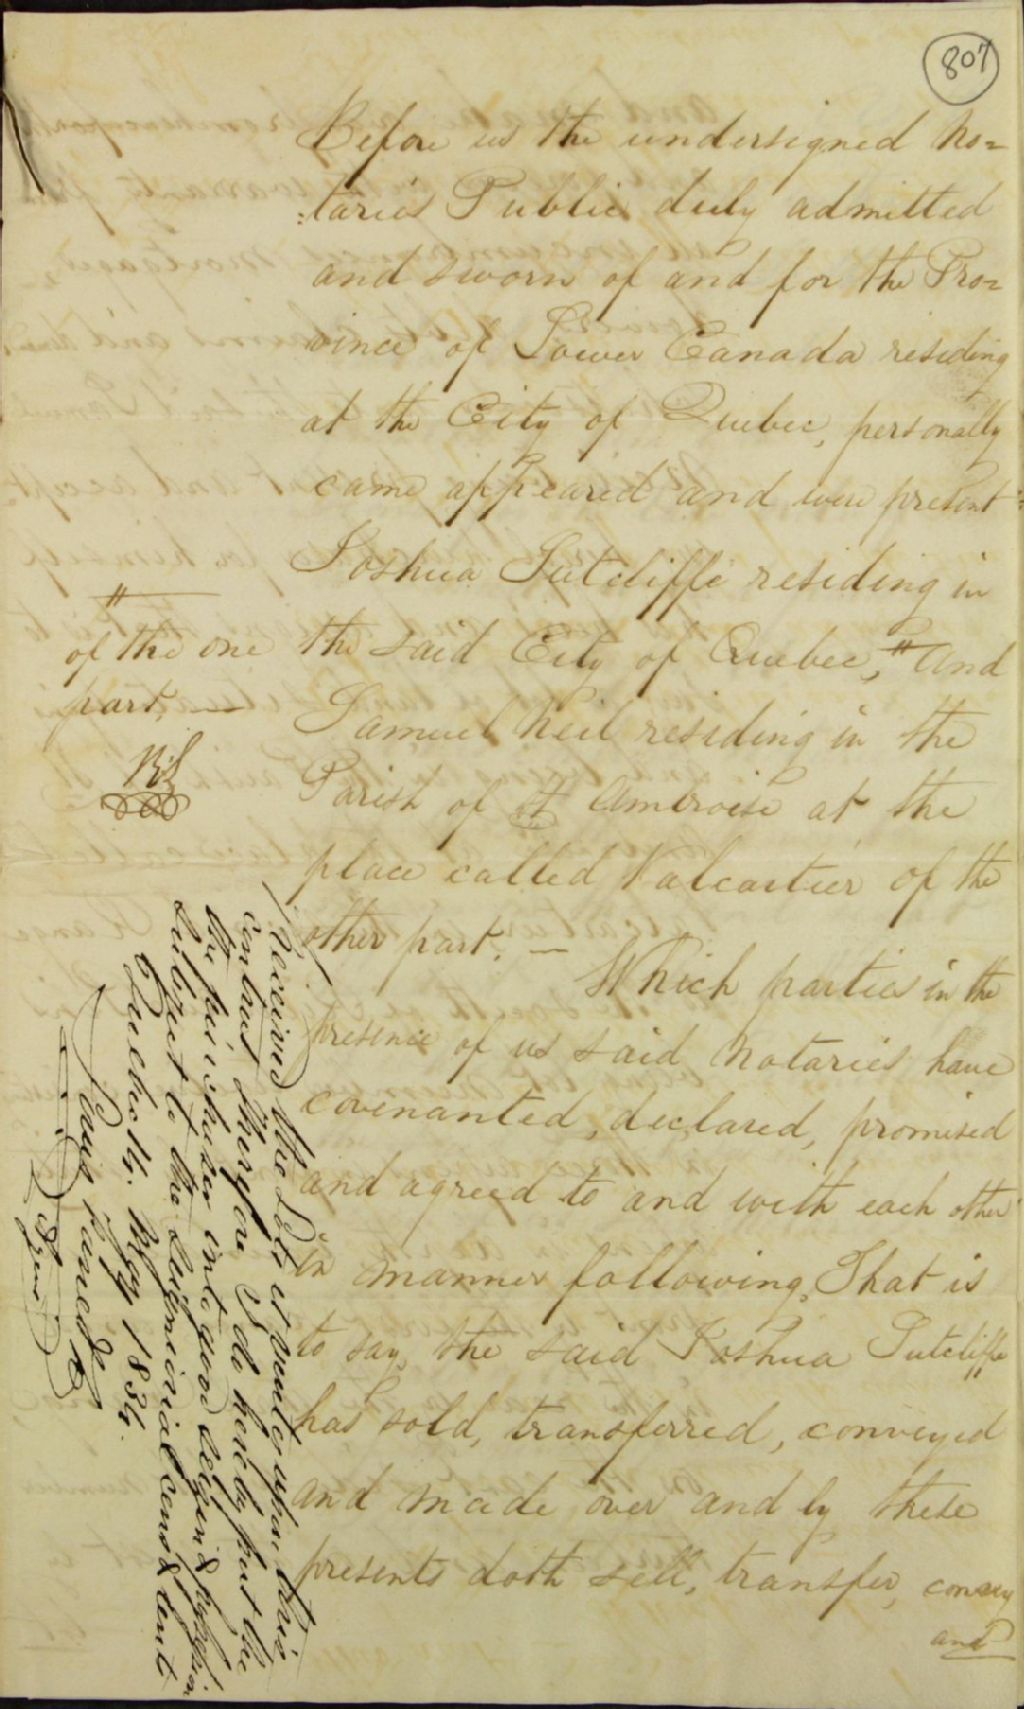 807
Before us the undersigned No=
:taries Public duly admitted
and sworn of and for the Pro=
vince of Lower Canada residing
at the City of Quebec, personally
came appeared and were present
Joshua Sutcliffe residing in
the said City of Quebec, " and
Samuel Neil residing in the
Parish of St Ambroise at the
place called Valcartier of the
other part. —
Which parties in the
presence of us said Notaries have
covenanted, declared, promised
and agreed to and with each other
in manner following, That is
to say, the said Joshua Sutcliffe
has sold, transferred, conveyed
and made over and by these
presents doth sell, transfer, convey
and
"
of the one
part, —
Received the Lods et ventes upon this
contract therefore I do hereby put the
the purchaser into good
subject to the Seigniorial cens & rent
Quebec 14. May 1834.
Louis
Agent